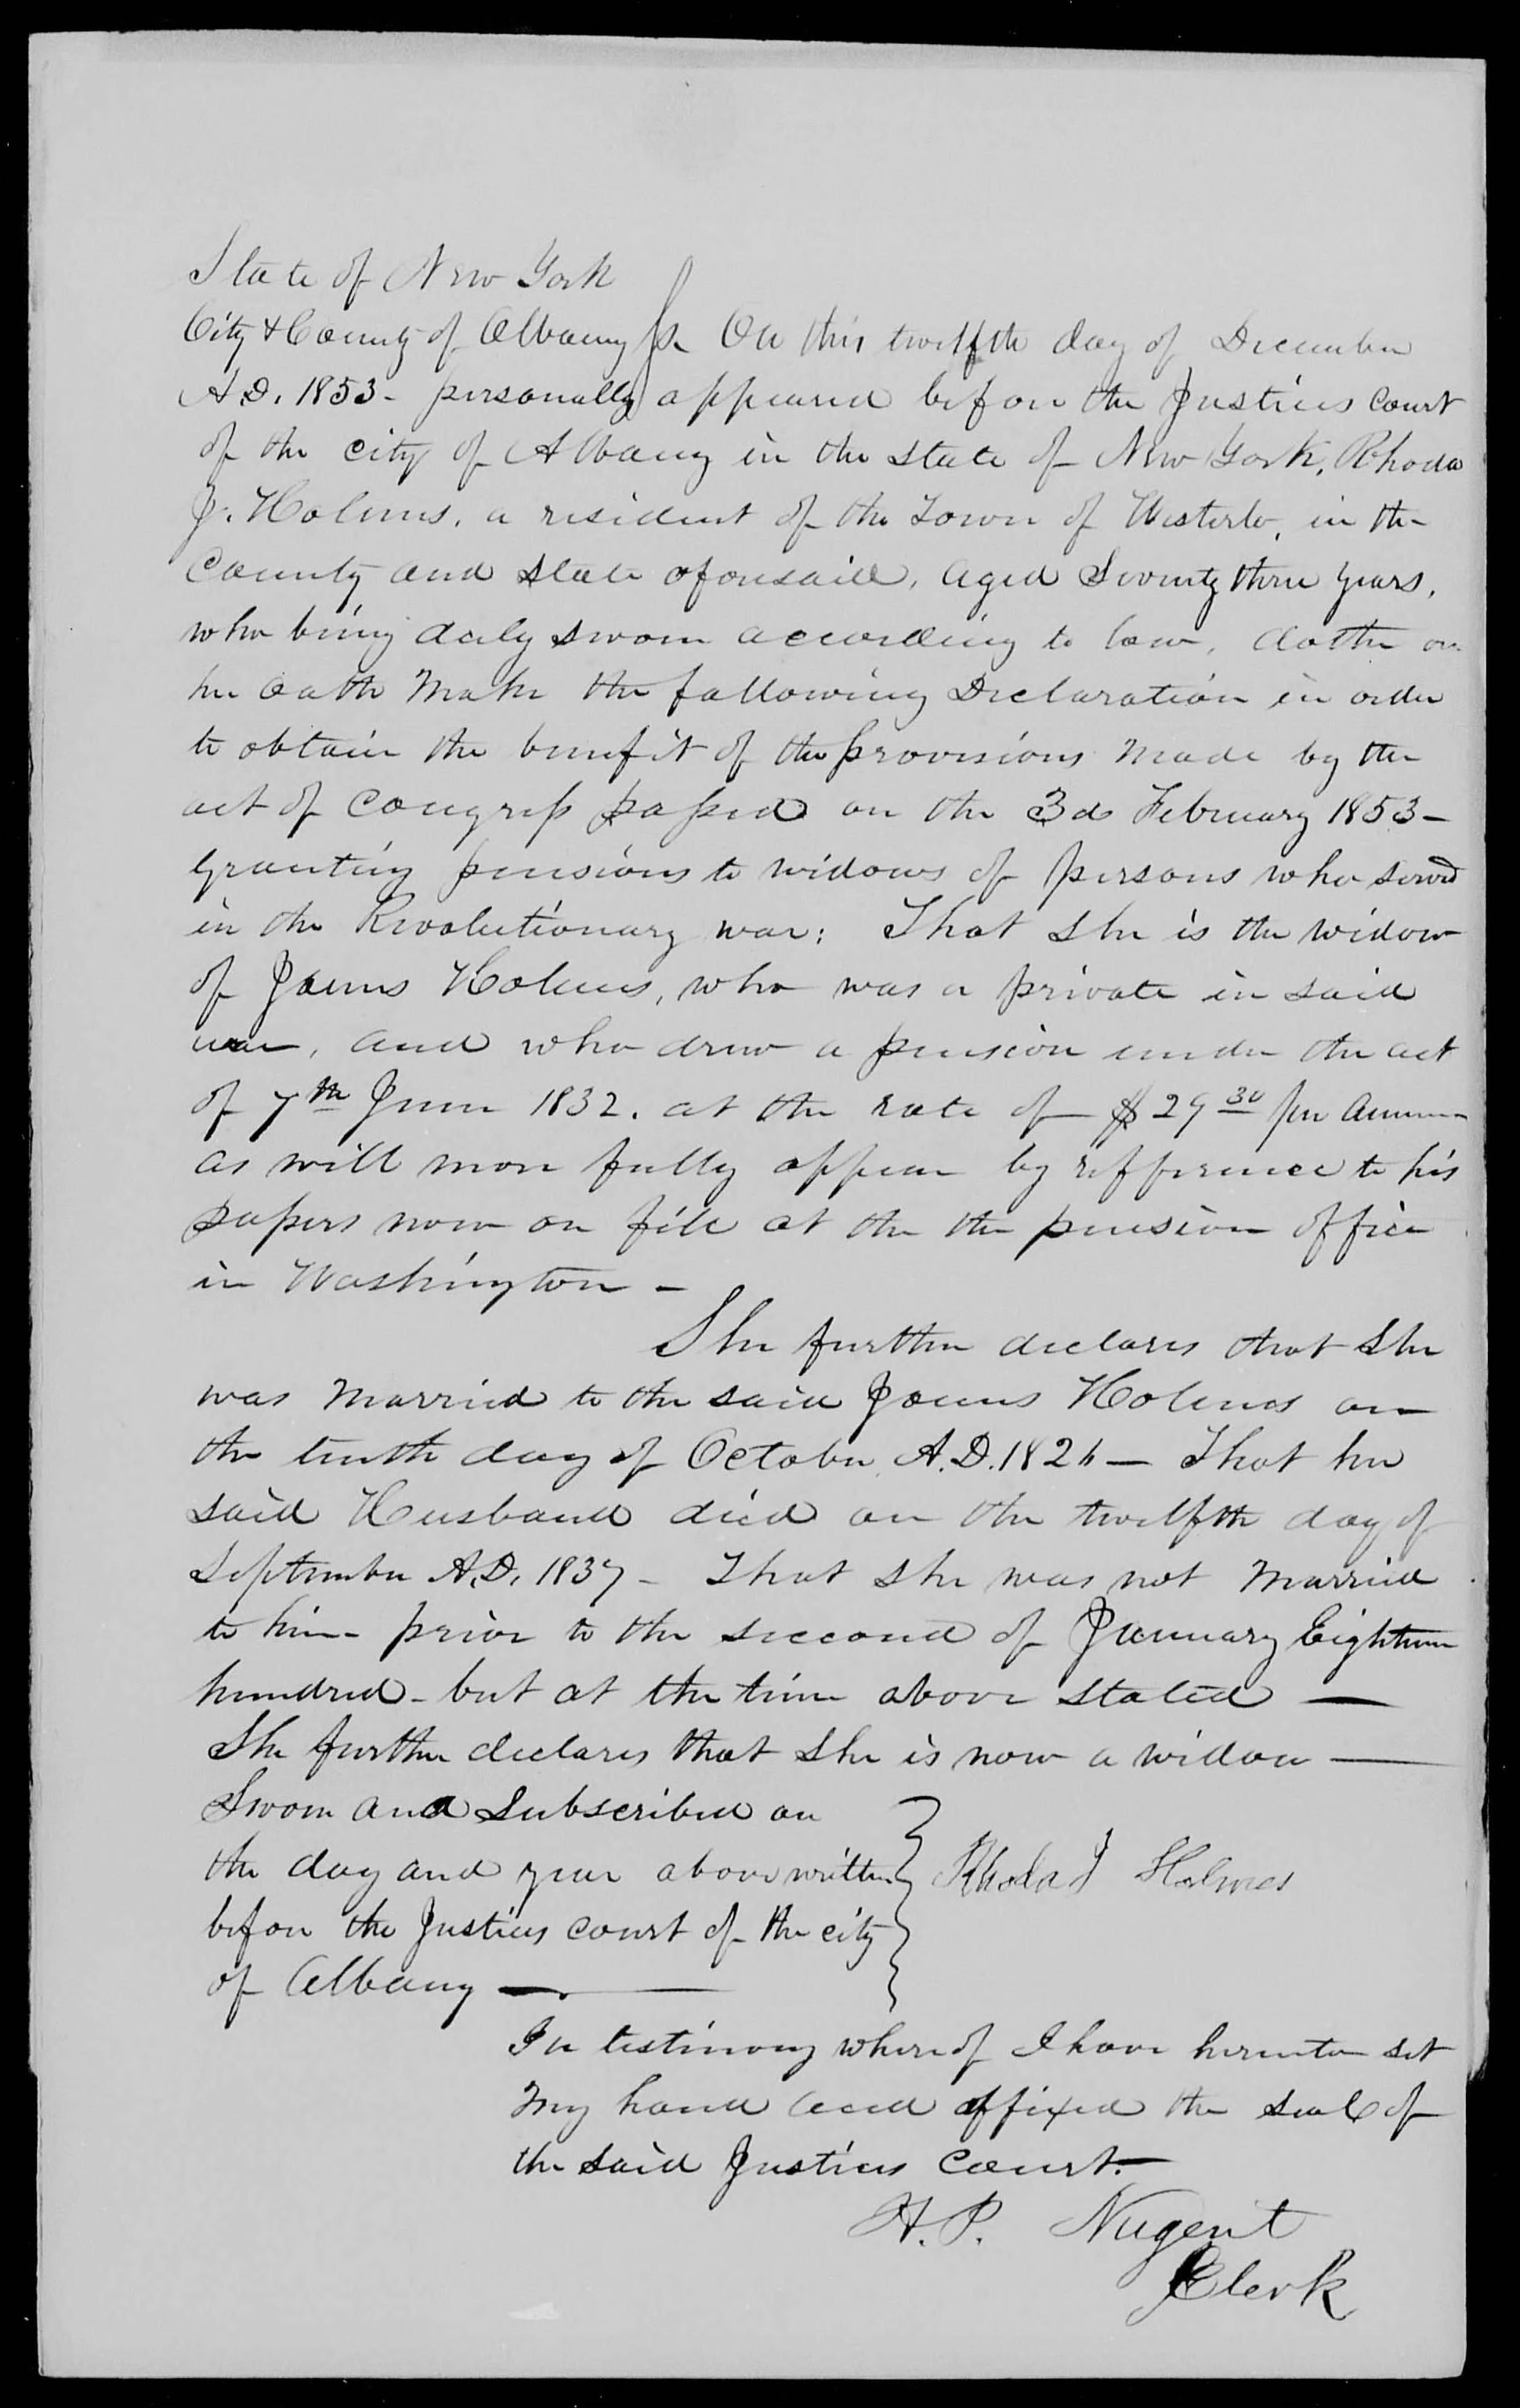 State of New York
City & County of Albany Ss. On this twelfth day of December
A.D. 1853 - personally appeared before the Justices Court
of the city of Albany in the State of New York, Rhoda
J. Holmes, a resident of the Town of Westerlo, in the
County and State aforesaid, aged Seventy three years,
who being duly sworn according to law, doth on
her oath make the following Declaration in order
to obtain the benefit of the provisions made by the
act of Congress passed on the 3d February 1853 -
granting pensions to widows of persons who served
in the Revolutionary war: That she is the widow
of James Holmes, who was a private in said
war, and who drew a pension under the act
of 7th June 1832. at the rate of $29 30 per annum
as will more fully appear by refference to his
papers now on file at the the pension office
in Washington -
She further declares that she
was married to the said James Holmes on
the tenth day of October A.D. - That her
said Husband died on the twelfth day of
September A.D. 1837 - That she was not married
to him - prior to the seccond of January Eighteen
hundred - but at the time above stated -
She further declares that she is now a widow -
Sworn and Subscribed on
the day and year above written
before the Justices court of the city
of Albany -
Rhoda J Holmes
In testimony whereof I have hereunto set
my hand and affixed the seal of
the said Justices Court. -
H. P. Nugent
Clerk